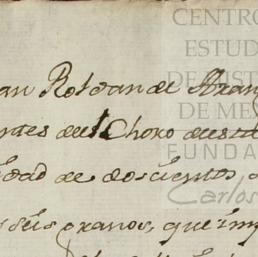 CENTRO
ESTUD
DE HIST
DE ME
FUNDA
Carlos
an Roldan de Aran
ntes del Choro deste
idad de doscientos
y seis granos, que imp